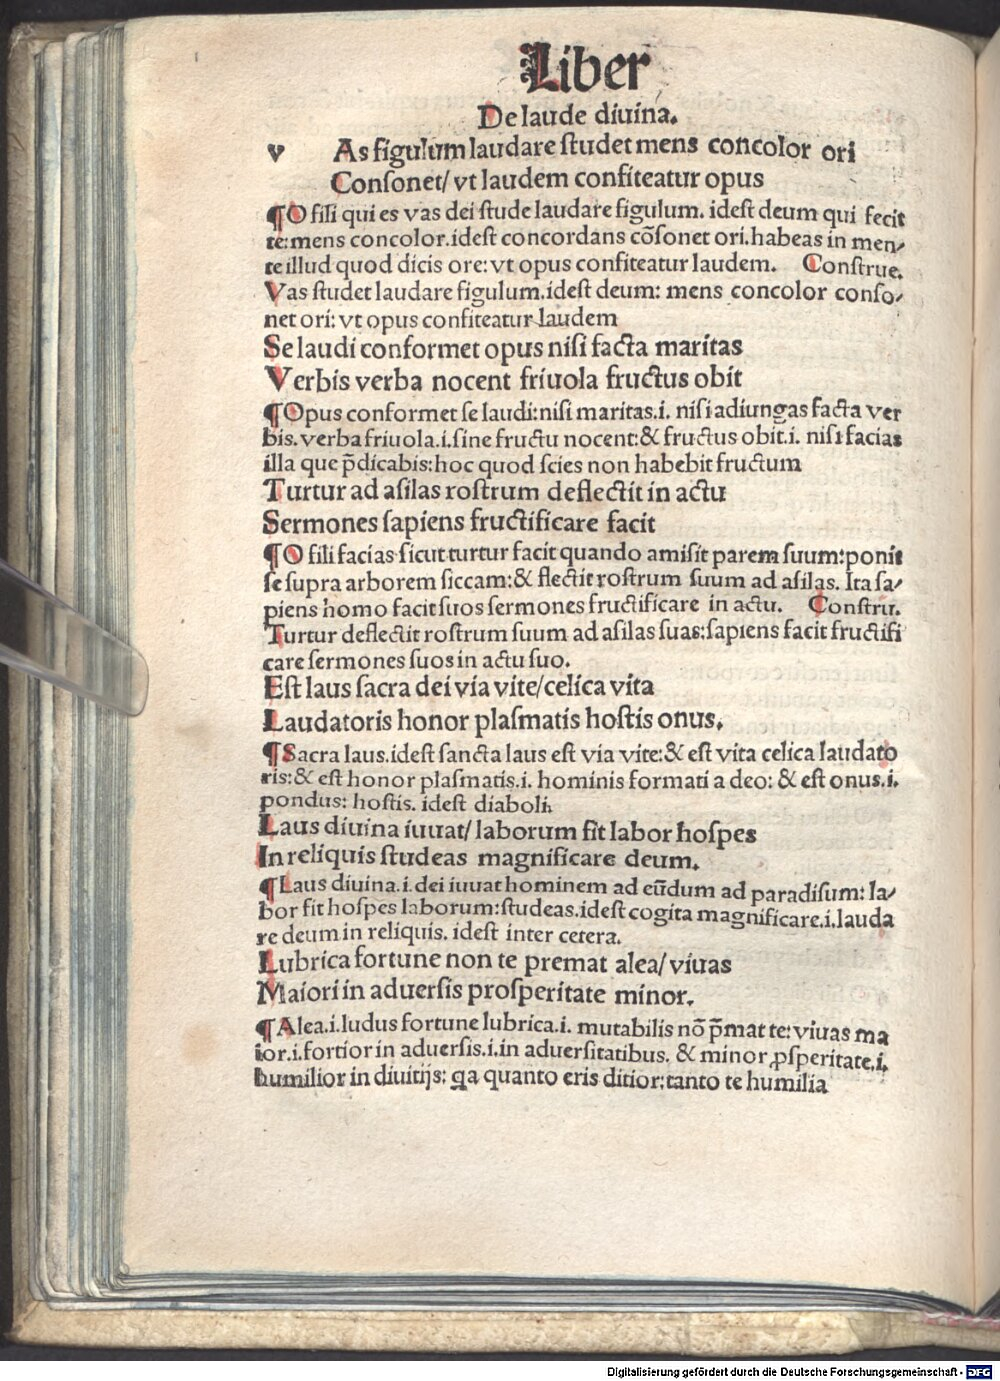 Liber
De laude diuina.
v As figulum laudare ſtudet mens concolor ori
Conſonet/ vt laudem confiteatur opus
¶O fili qui es vas dei ſtude laudare figulum. ideſt deum qui fecit
te: mens concolor. ideſt concordans cõſonet ori. habeas in men⸗
te illud quod dicis ore: vt opus confiteatur laudem. Conſtrue.
Vas ſtudet laudare figulum. ideſt deum: mens concolor conſo⸗
net ori: vt opus confiteatur laudem
Se laudi conformet opus niſi facta maritas
Verbis verba nocent friuola fructus obit
¶Opus conformet ſe laudi: niſi maritas .i. niſi adiungas facta ver
bis. verba friuola .i. ſine fructu nocent: & fructus obit .i. niſi facias
illa que p̄dicabis: hoc quod ſcies non habebit fructum
Turtur ad aſilas roſtrum deflectit in actu
Sermones ſapiens fructificare facit
¶O fili facias ſicut turtur facit quando amiſit parem ſuum: ponit
ſe ſupra arborem ſiccam: & flectit roſtrum ſuum ad aſilas. Ita ſa⸗
piens homo facit ſuos ſermones fructificare in actu. Conſtru.
Turtur deflectit roſtrum ſuum ad aſilas ſuas: ſapiens facit fructifi
care ſermones ſuos in actu ſuo.
Eſt laus ſacra dei via vite/ celica vita
Laudatoris honor plaſmatis hoſtis onus.
¶Sacra laus. ideſt ſancta laus eſt via vite: & eſt vita celica laudato
ris: & eſt honor plaſmatis .i. hominis formati a deo: & eſt onus .i.
pondus: hoſtis. ideſt diaboli.
Laus diuina iuuat/ laborum fit labor hoſpes
In reliquis ſtudeas magnificare deum.
¶Laus diuina .i. dei iuuat hominem ad eūdum ad paradiſum: la⸗
bor fit hoſpes laborum: ſtudeas. ideſt cogita magnificare .i. lauda
re deum in reliquis. ideſt inter cetera.
Lubrica fortune non te premat alea/ viuas
Maiori in aduerſis proſperitate minor.
¶Alea .i. ludus fortune lubrica .i. mutabilis nō p̄mat te: viuas ma
ior .i. fortior in aduerſis .i. in aduerſitatibus. & minor ꝓſperitate .i.
humilior in diuitijs: qa quanto eris ditior: tanto te humilia
Digitalisierung gefördert durch die Deutsche Forschungsgemeinschaft - DFG